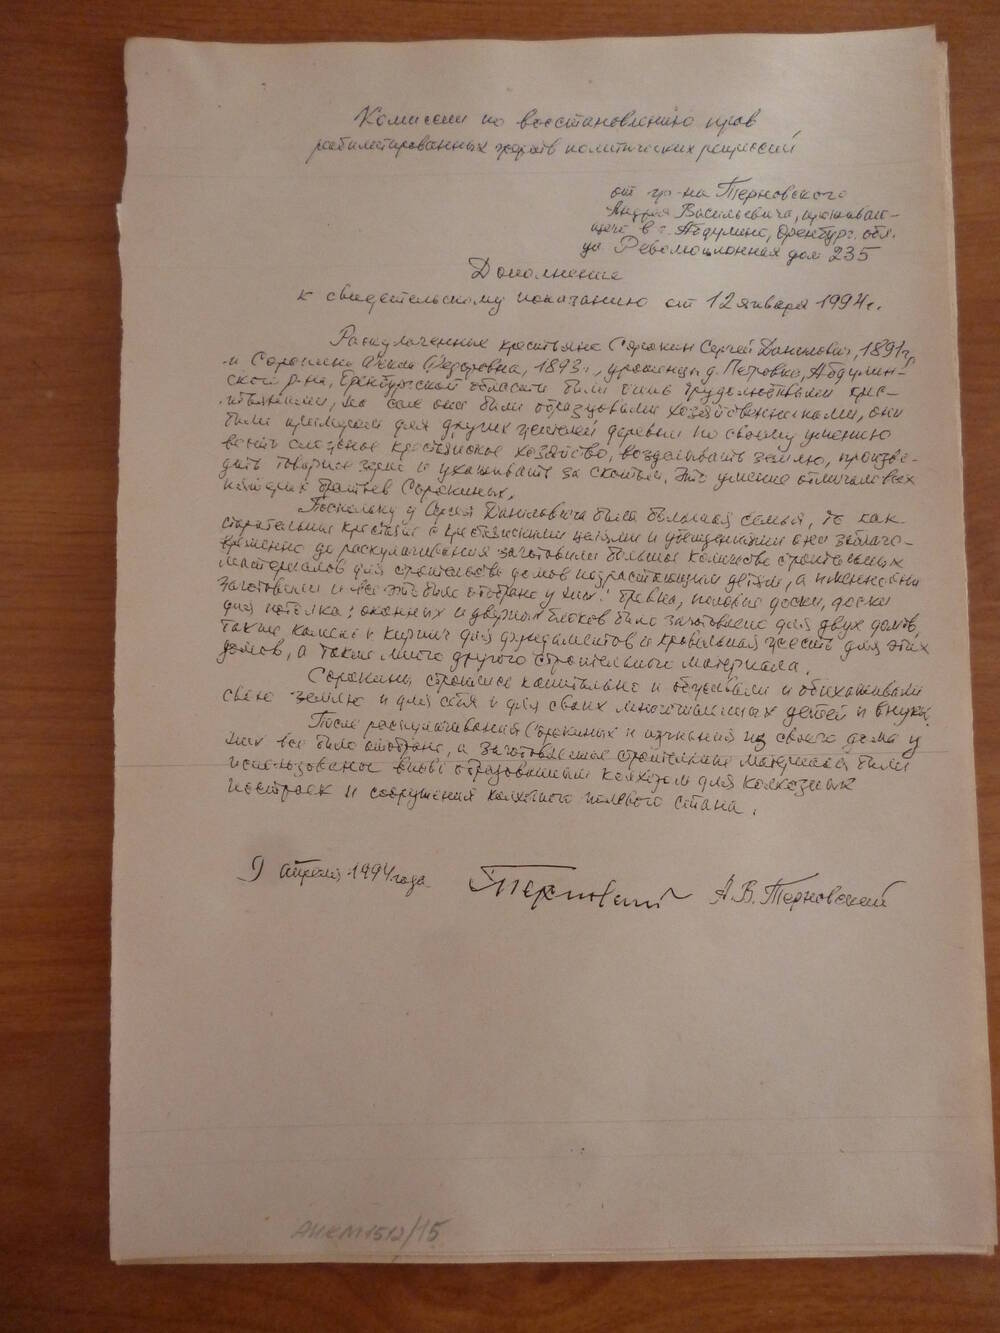 Комиссии по восстановлению прав
реабилитированных жертв политических репрессий
от гр-на Терновского
Андрея Васильевича, проживаю-
щего в г. Абдулино, Оренбург. обл.
ул Революционная дом 235
Дополнение
к свидетельскому показанию от 12 января 1994 г.
Раскулаченные крестьяне Сорокин Сергей Данилович, 1891 г,
и Сорокина Федоровна, 1893 г, уроженцы д. Петровка, Абдулин-
ского р-на, Оренбургской области были очень трудолюбивыми крес-
тьянами, на селе они были образцовыми хозяйственниками, они
были примером для других жителей деревни по своему умению
вести сложное крестьянское хозяйство, возделывать землю, произво-
дить товарное зерно и ухаживать за скотом. Это умение отличало всех
братьев Сорокиных.
Поскольку у Сергея Даниловича была большая семья, то как
старательные крестьяне с крестьянскими и убеждениями они заблаго-
временно до раскулачивания заготовили большое количество строительных
материалов для строительства домов подрастающим детям, а именно они
заготовили и все это было отобрано у них: бревна, половые доски, доски
для потолка, оконных и дверных блоков было заготовлено для двух домов,
также камень и кирпич для фундаментов и кровельная жесть для этих
домов, а также много другого строительного материала.
Сорокины строились капитально и обживали и обихаживали
свою землю и для себя и для своих многочисленных детей и внуков.
После раскулачивания Сорокиных и изгнания из своего дома у
них все было отобрано, а заготовленные строительные материалы были
использованы вновь образованным колхозом для колхозных
построек и сооружения колхозного полевого стана.
9 апреля 1994 года Терновский А.В. Терновский
АИКМ 1512/15